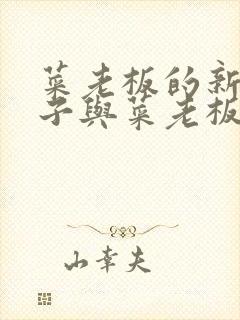 菜老板的新
子與菜老板
山幸夫